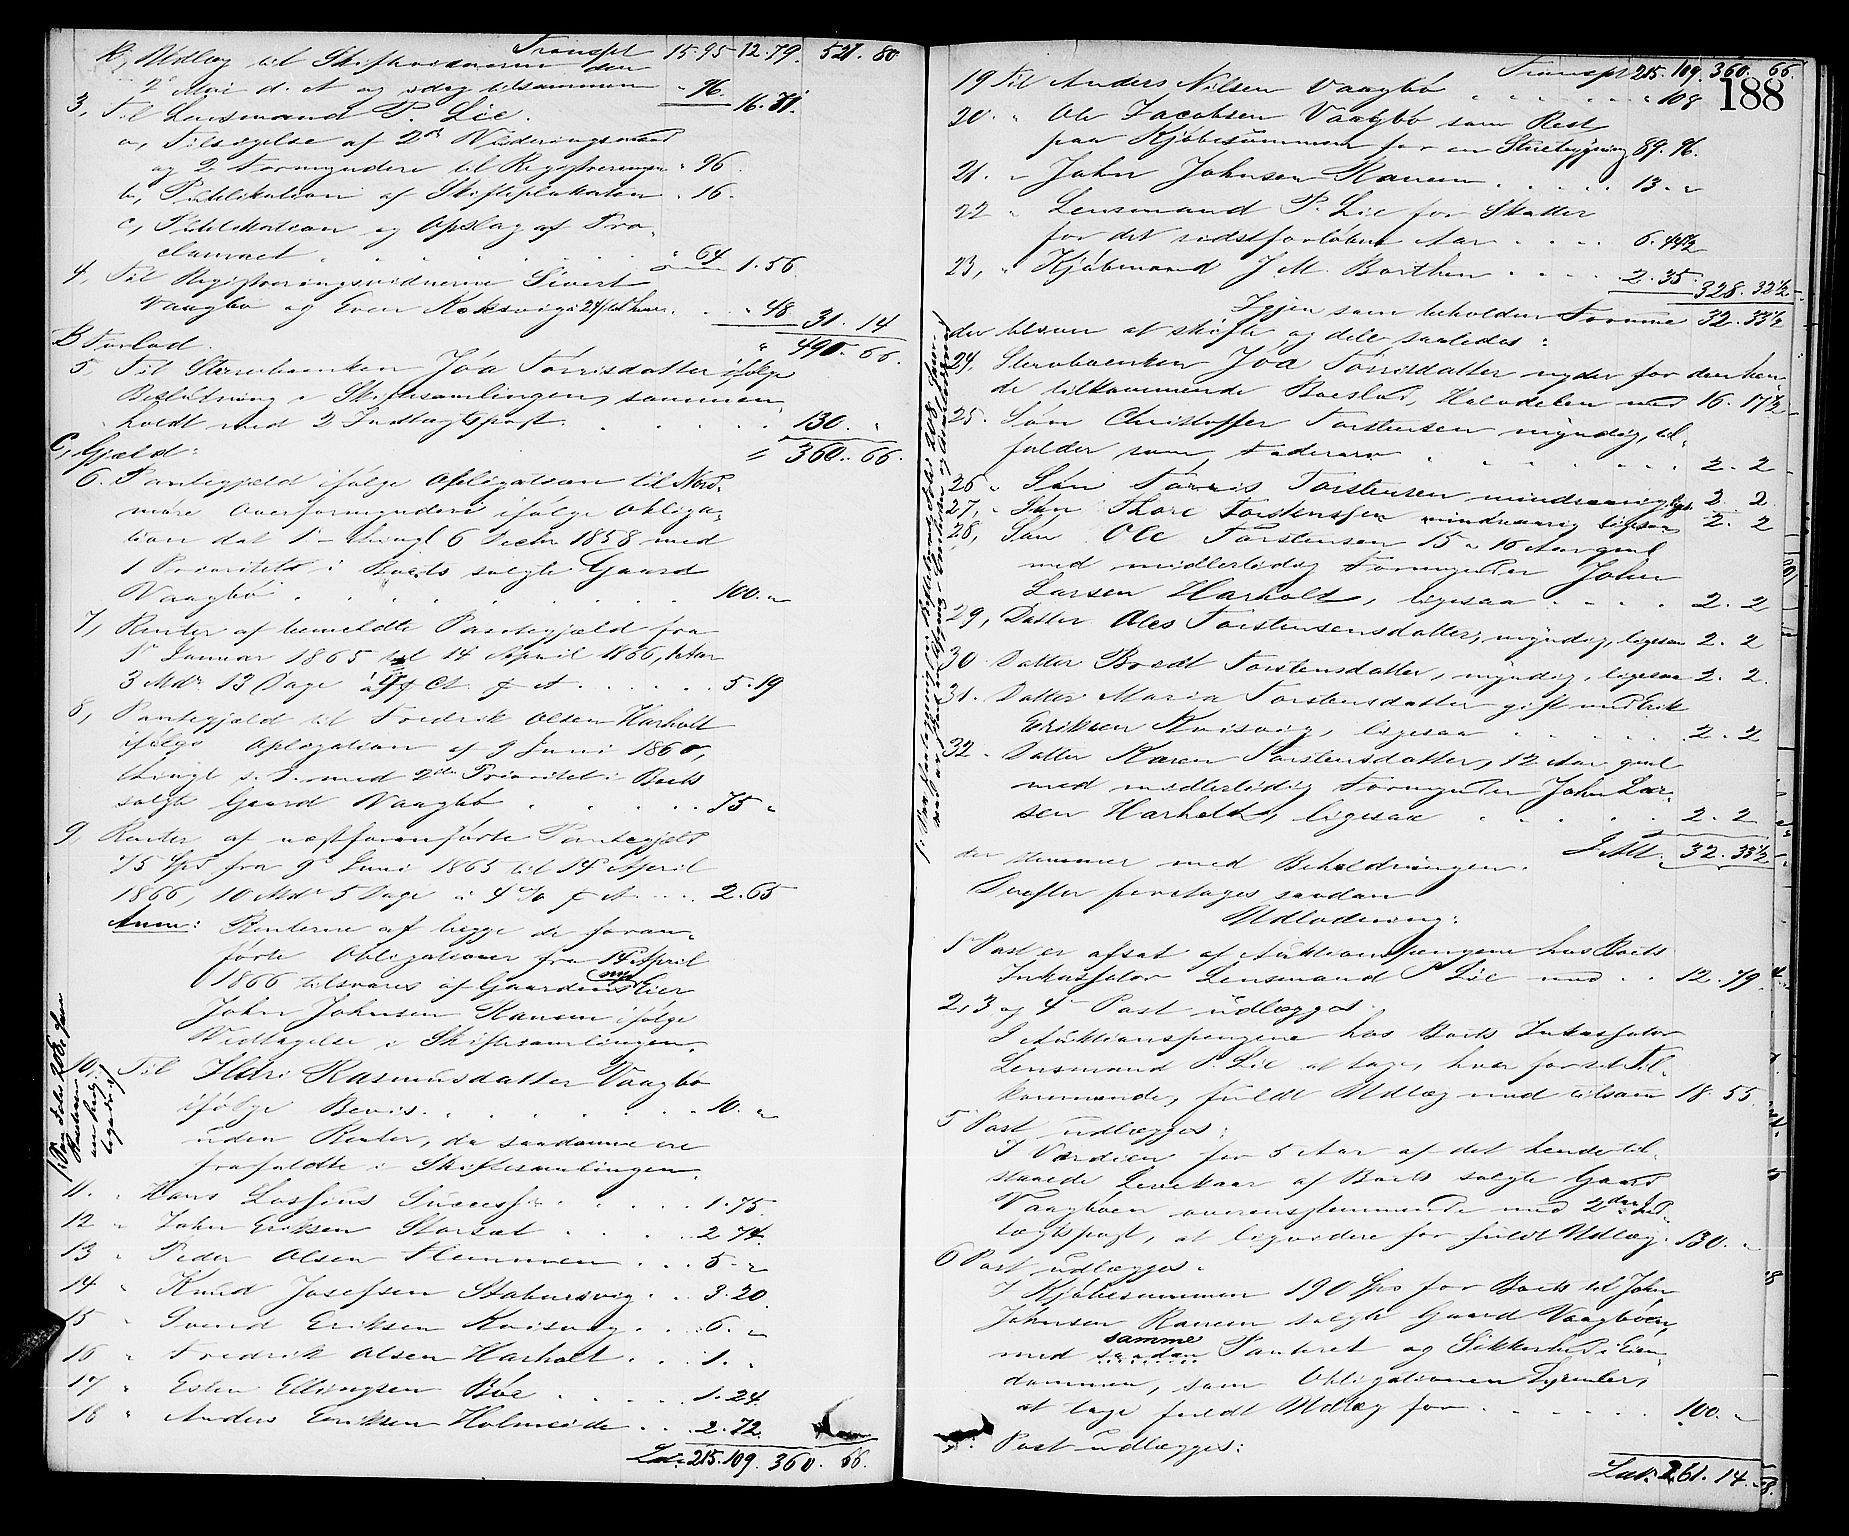 Transpt 15.95 12.79. 521. 80.
k, Udlæg til Skiftevidnerne den
2 Mai d. A og idag tilsammen " 96. 16. 71.
3, Til Lensmand P. Lie.
a, Tilsigelse af 2de Vurderingsmænd
og 2 Formyndere til Registreringen " 96.
b, Publikation af Skifteplakaten " 16.
c, Publikation og Opslag af Pro-
clamaet " 64 1. 56.
4, Til Registreringsvidnerne Sivert
Vaagbø og Even Koksvig à 24 s til hver " 48 31. 14
" 490. 66.
B Forlod.
5. Til Stervboenken Jóa Torrisdatter ifølge
Beslutning i Skiftesamlingen, sammen-
holdt med 2 Indtægtspost. 130. "
" 360. 66.
C, Gjæld:
6. Pantegjæld ifølge Obligation til Nord-
møre Overformynderi ifølge Obliga-
tion dat 1 - thingl 6 Decbr 1858 med
1 Prioritet i Boets solgte Gaard
Vaagbø 100. "
7, Renter af bemeldte Pantegjæld fra
1 Januar 1865 til 14 April 1866, 1 Aar
3 Mdr. 13 Dage à 4 p Ct. p A 5. 19
8, Pantegjæld til Fredrik Olsen Harholt
ifølge Obligation af 9 Juni 1860,
thingl s. D. med 2den Prioritet i Boets
solgte Gaard Vaagbø 75 "
9, Renter af næstforanførte Pantegjæld
75 Spd fra 9 Juni 1865 til 14 April
1866, 10 Mdr 5 Dage à 4 % p A 2. 65
Anm: Renterne af begge de foran-
førte Obligationer fra 14 April
1866 tilsvares af Gaardens nye Eier
John Johnsen Ranem ifølge
Vedtagelse i Skiftesamlingen.
10, Til Rasmusdatter Vaagbø
ifølge Bevis 10. "
uden Renter, da saadanne ere
frafaldte i Skiftesamlingen.
11. " Hans Lossius Success 1. 75.
12 " John Eriksen Storsæt 2 74.
13 " Peder Olsen Hemmen 5. "
14 " Knud Josefsen Stabursvig 3. 20.
15 " Svend Eriksen Kvisvig 6. "
16 " Fredrik Olsen Harholt 1. "
17 " Esten Ellingsen Bøe 1. 24.
18 " Anders Eriksen Holmeide 2. 72.
Lat. 215. 109. 360. 66.
188
Transpt 215. 109. 360. 66.
19 Til Anders Nilsen Vaagbø " 108
20. " Ole Jacobsen Vaagbø som Rest
paa Kjøbesummen for en Stuebygning 89. 96.
21. " John Johnsen Ranem 13. "
22 " Lensmand P. Lie for Skatter
for det sidstforløbne Aar 6. 44½
23, " Kjøbmand J M. Barthen 2. 35. 328. 32½
Igjen som beholden Formue 32. 33½
der bliver at skifte og dele saaledes:
24, Stervboenken Jóa Torrisdatter nyder for den hen-
de tilkommende Boeslod, Halvdelen med 16. 17½
25. Søn Christoffer Torstensen myndig, til-
falder som Faderarv 2. 2
26 " Søn Torris Torstensen mindreaarig lige 2. 2.
27, " Søn Thore Torstensen mindreaarig ligesaa 2. 2
28, Søn Ole Torstensen 15 à 16 Aar gml
med midlertidig Formynder John
Larsen Harholt, ligesaa 2. 2
29, Datter Ales Torstensdatter, myndig, ligesaa 2. 2
30. Datter Boedt Torstensdatter, myndig, ligesaa 2. 2.
31. Datter Maria Torstensdatter gift med Erik
Eriksen Kvisvig, ligesaa 2. 2
32 - Datter Karen Torstensdatter, 12 Aar gml
med midlertidig Formynder John Lar-
sen Harholt, ligesaa 2. 2
der stemmer med Beholdningen. I Alt 32. 33½
Derefter foretages saadan
Udlodning:
1 Post er afsat af Auktionspengene hos Boets
Inkassator Lensmand P Lie med 12. 79.
2, 3 og 4 Post udlægges
I Auktionspengene hos Boets Inkassator
Lensmand P. Lie at tage, hver for sit Til-
kommende, fuldt Udlæg med tilsam 18. 55.
5 Post udlægges:
I Værdien for 5 Aar af det hende til-
staaede Levekaar af Boets solgte Gaard
Vaagbøen overensstemmende med 2den Ind-
tægtspost, at liqvidere for fuldt Udlæg 130. "
6 Post udlægges.
I Kjøbesummen 190 Spd for Boets til John
Johnsen Ranem solgte Gaard Vaagbøen,
med samme saadan Panteret og Sikkerhed i Eien-
dommen, som Obligationen hjemler,
at tage fuldt Udlæg for 100. "
7. Post udlægges:
Lat. 261. 14.